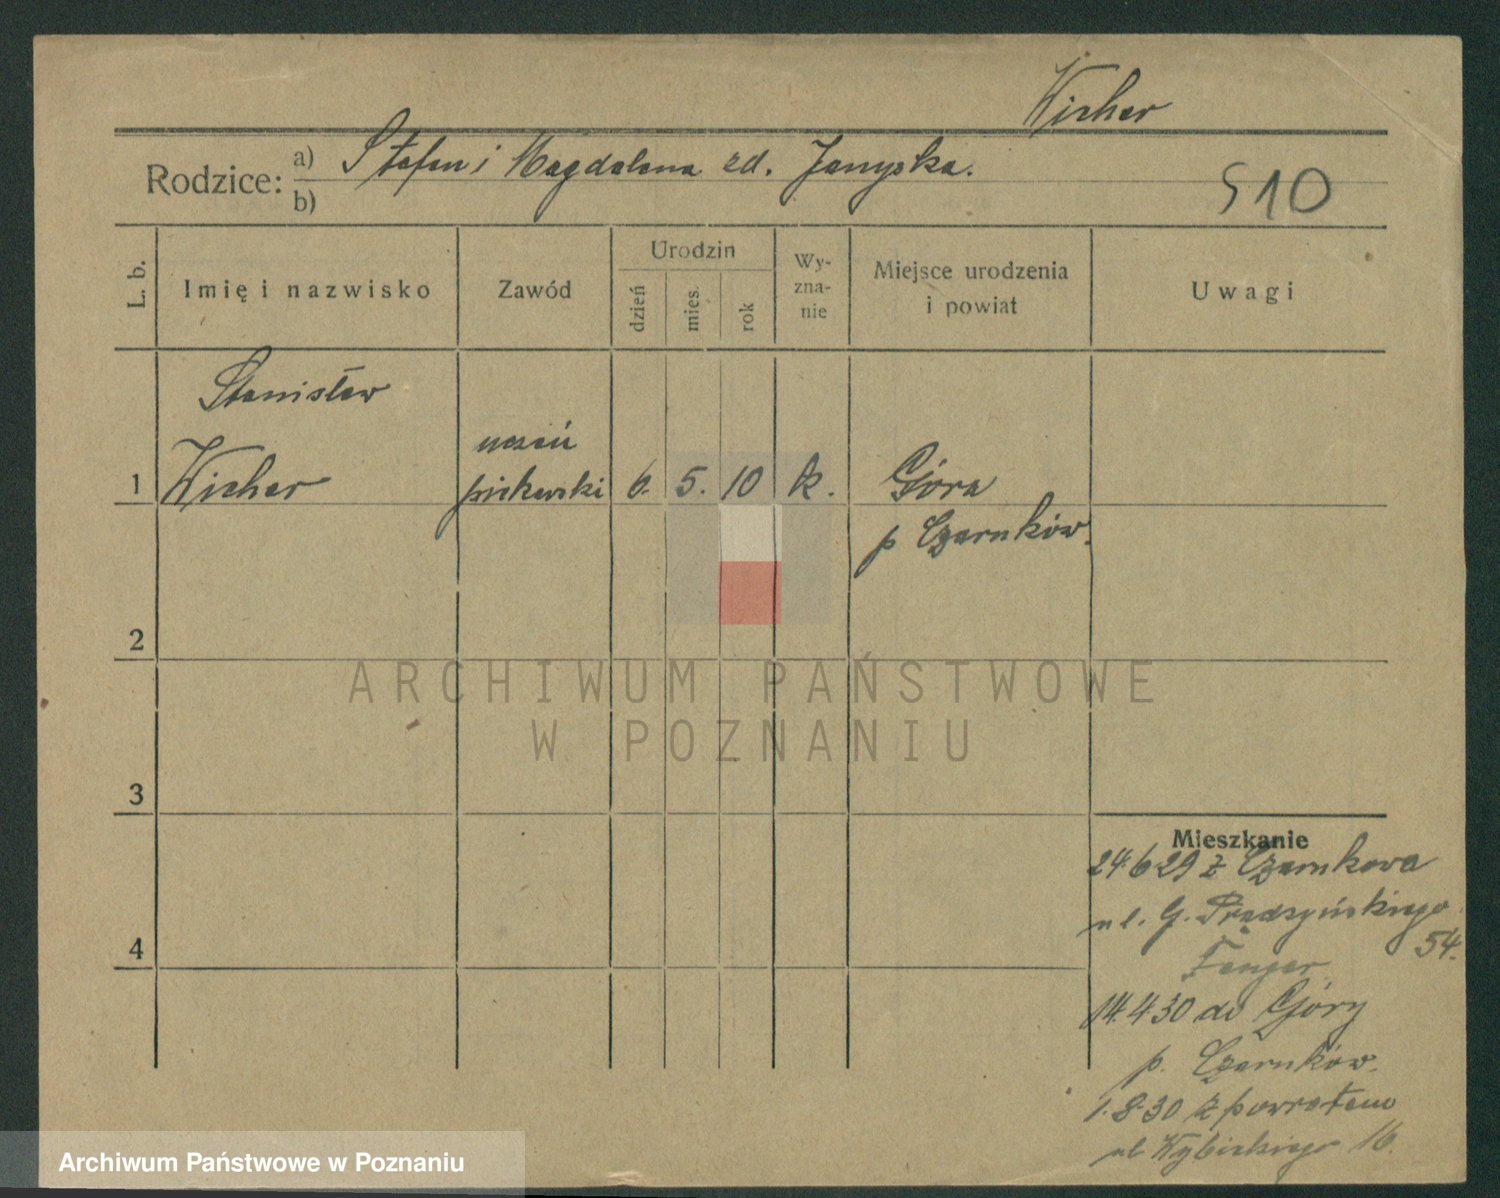 Wicher
Rodzice: a) Stefan i Magdalena zd. Janyska.
b)
510
L. b.
Imię i nazwisko
Zawód
Urodzin
dzień
mies.
rok
Wy-
zna-
nie
Miejsce urodzenia
i powiat
Uwagi
Stanisław
1 Wicher
uczeń
piekarski
6. 5. 10 k.
Góra
p Czarnków.
2
3
4
Mieszkanie
24.6 29 z Czarnkowa
ul. G. Prądzyńskiego
54.
14.4 30 do Góry
p. Czarnków.
1.8.30 z powrotem
ul Wybickiego 16.
ARCHIWUM PAŃSTWOWE
W POZNANIU
Archiwum Państwowe w Poznaniu